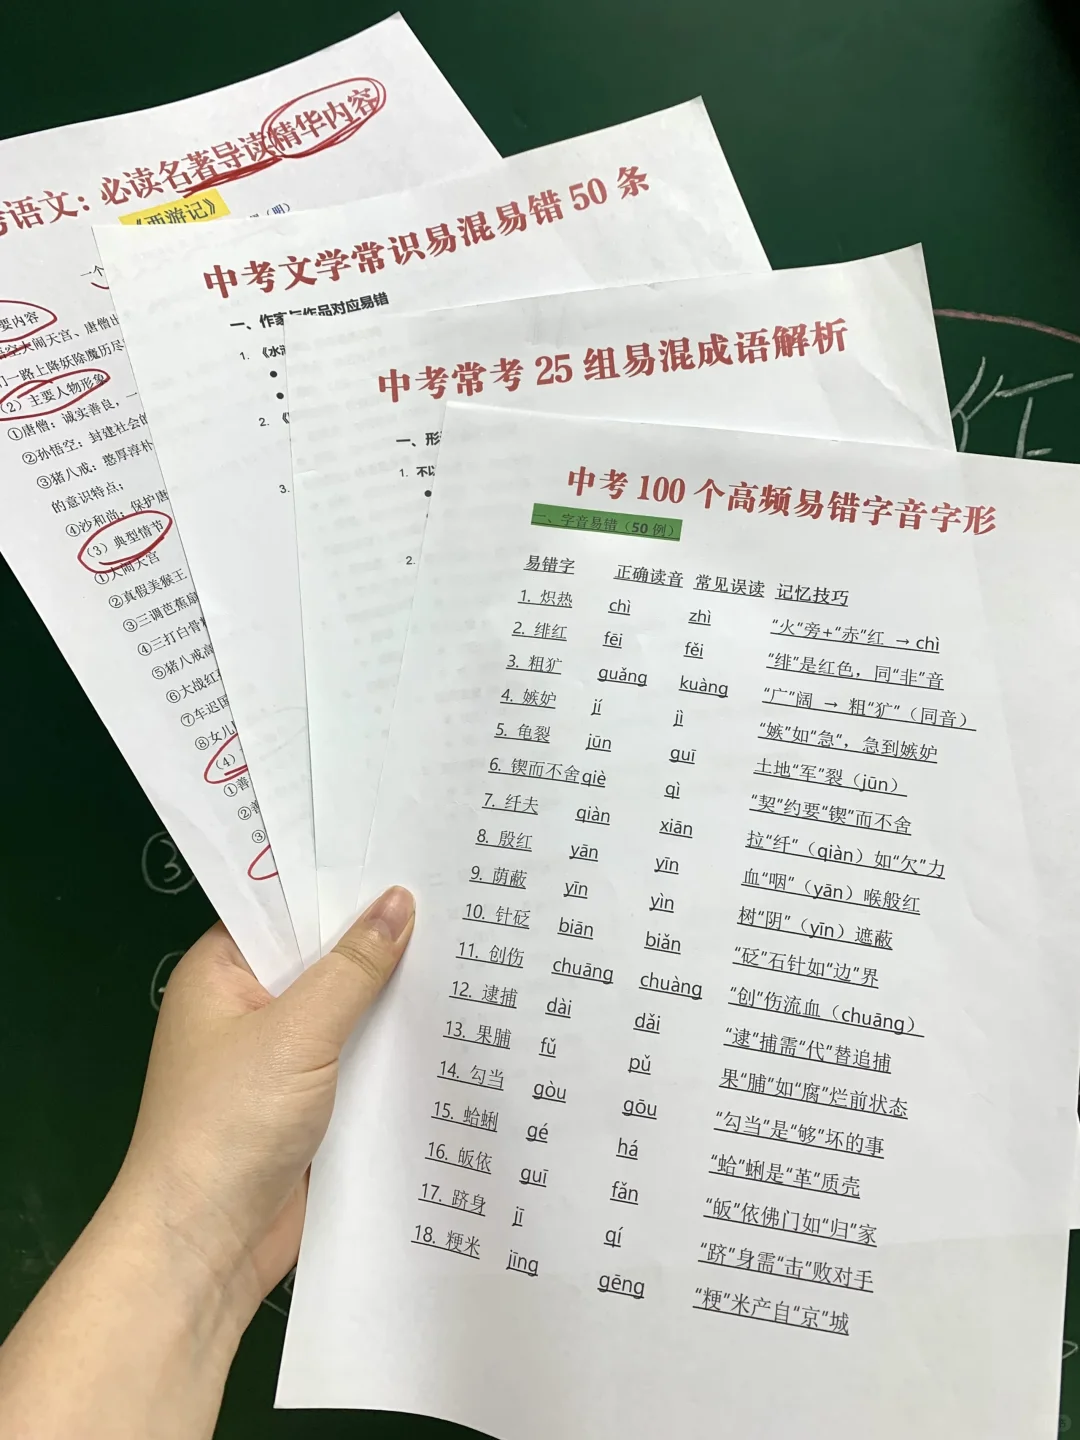 考语文：必读名著导读精华内容
《西游记》
（明）
一个
要内容
悟空大闹天宫、唐僧出
们一路上降妖除魔历尽
（2）主要人物形象
①唐僧：诚实善良，一
②孙悟空：封建社会的
③猪八戒：憨厚淳朴
的意识特点；
④沙和尚：保护唐
（3）典型情节
①大闹天宫
②真假美猴王
③三调芭蕉扇
④三打白骨精
⑤猪八戒高
⑥大战红
⑦车迟国
⑧女儿
（4）
①善
②善
③
中考文学常识易混易错 50 条
一、作家与作品对应易错
1. 《水浒
2. 《
3.
中考常考 25 组易混成语解析
一、形
1. 不以
2.
中考 100 个高频易错字音字形
一、字音易错（50 例）
易错字 正确读音 常见误读 记忆技巧
1. 炽热 chì zhì “火”旁+“赤”红 → chì
2. 绯红 fēi fěi “绯”是红色，同“非”音
3. 粗犷 guǎng kuàng “广”阔 → 粗“犷”（同音）
4. 嫉妒 jí jì “嫉”如“急”，急到嫉妒
5. 龟裂 jūn guī 土地“军”裂（jūn）
6. 锲而不舍 qiè qì “契”约要“锲”而不舍
7. 纤夫 qiàn xiān 拉“纤”（qiàn）如“欠”力
8. 殷红 yān yīn 血“咽”（yān）喉般红
9. 荫蔽 yīn yìn 树“阴”（yīn）遮蔽
10. 针砭 biān biǎn “砭”石针如“边”界
11. 创伤 chuāng chuàng “创”伤流血（chuāng）
12. 逮捕 dài dǎi “逮”捕需“代”替追捕
13. 果脯 fǔ pǔ 果“脯”如“腐”烂前状态
14. 勾当 gòu gōu “勾当”是“够”坏的事
15. 蛤蜊 gé há “蛤”蜊是“革”质壳
16. 皈依 guī fǎn “皈”依佛门如“归”家
17. 跻身 jī qí “跻”身需“击”败对手
18. 粳米 jīng gēng “粳”米产自“京”城